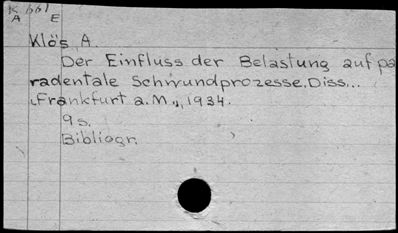 K 661
A E
Klös A.
Der Einfluss der Belastung auf pa
radentale Schwundprozesse. Diss...
Frankfurt a. M., 1934.
9 s.
Bibliogr.